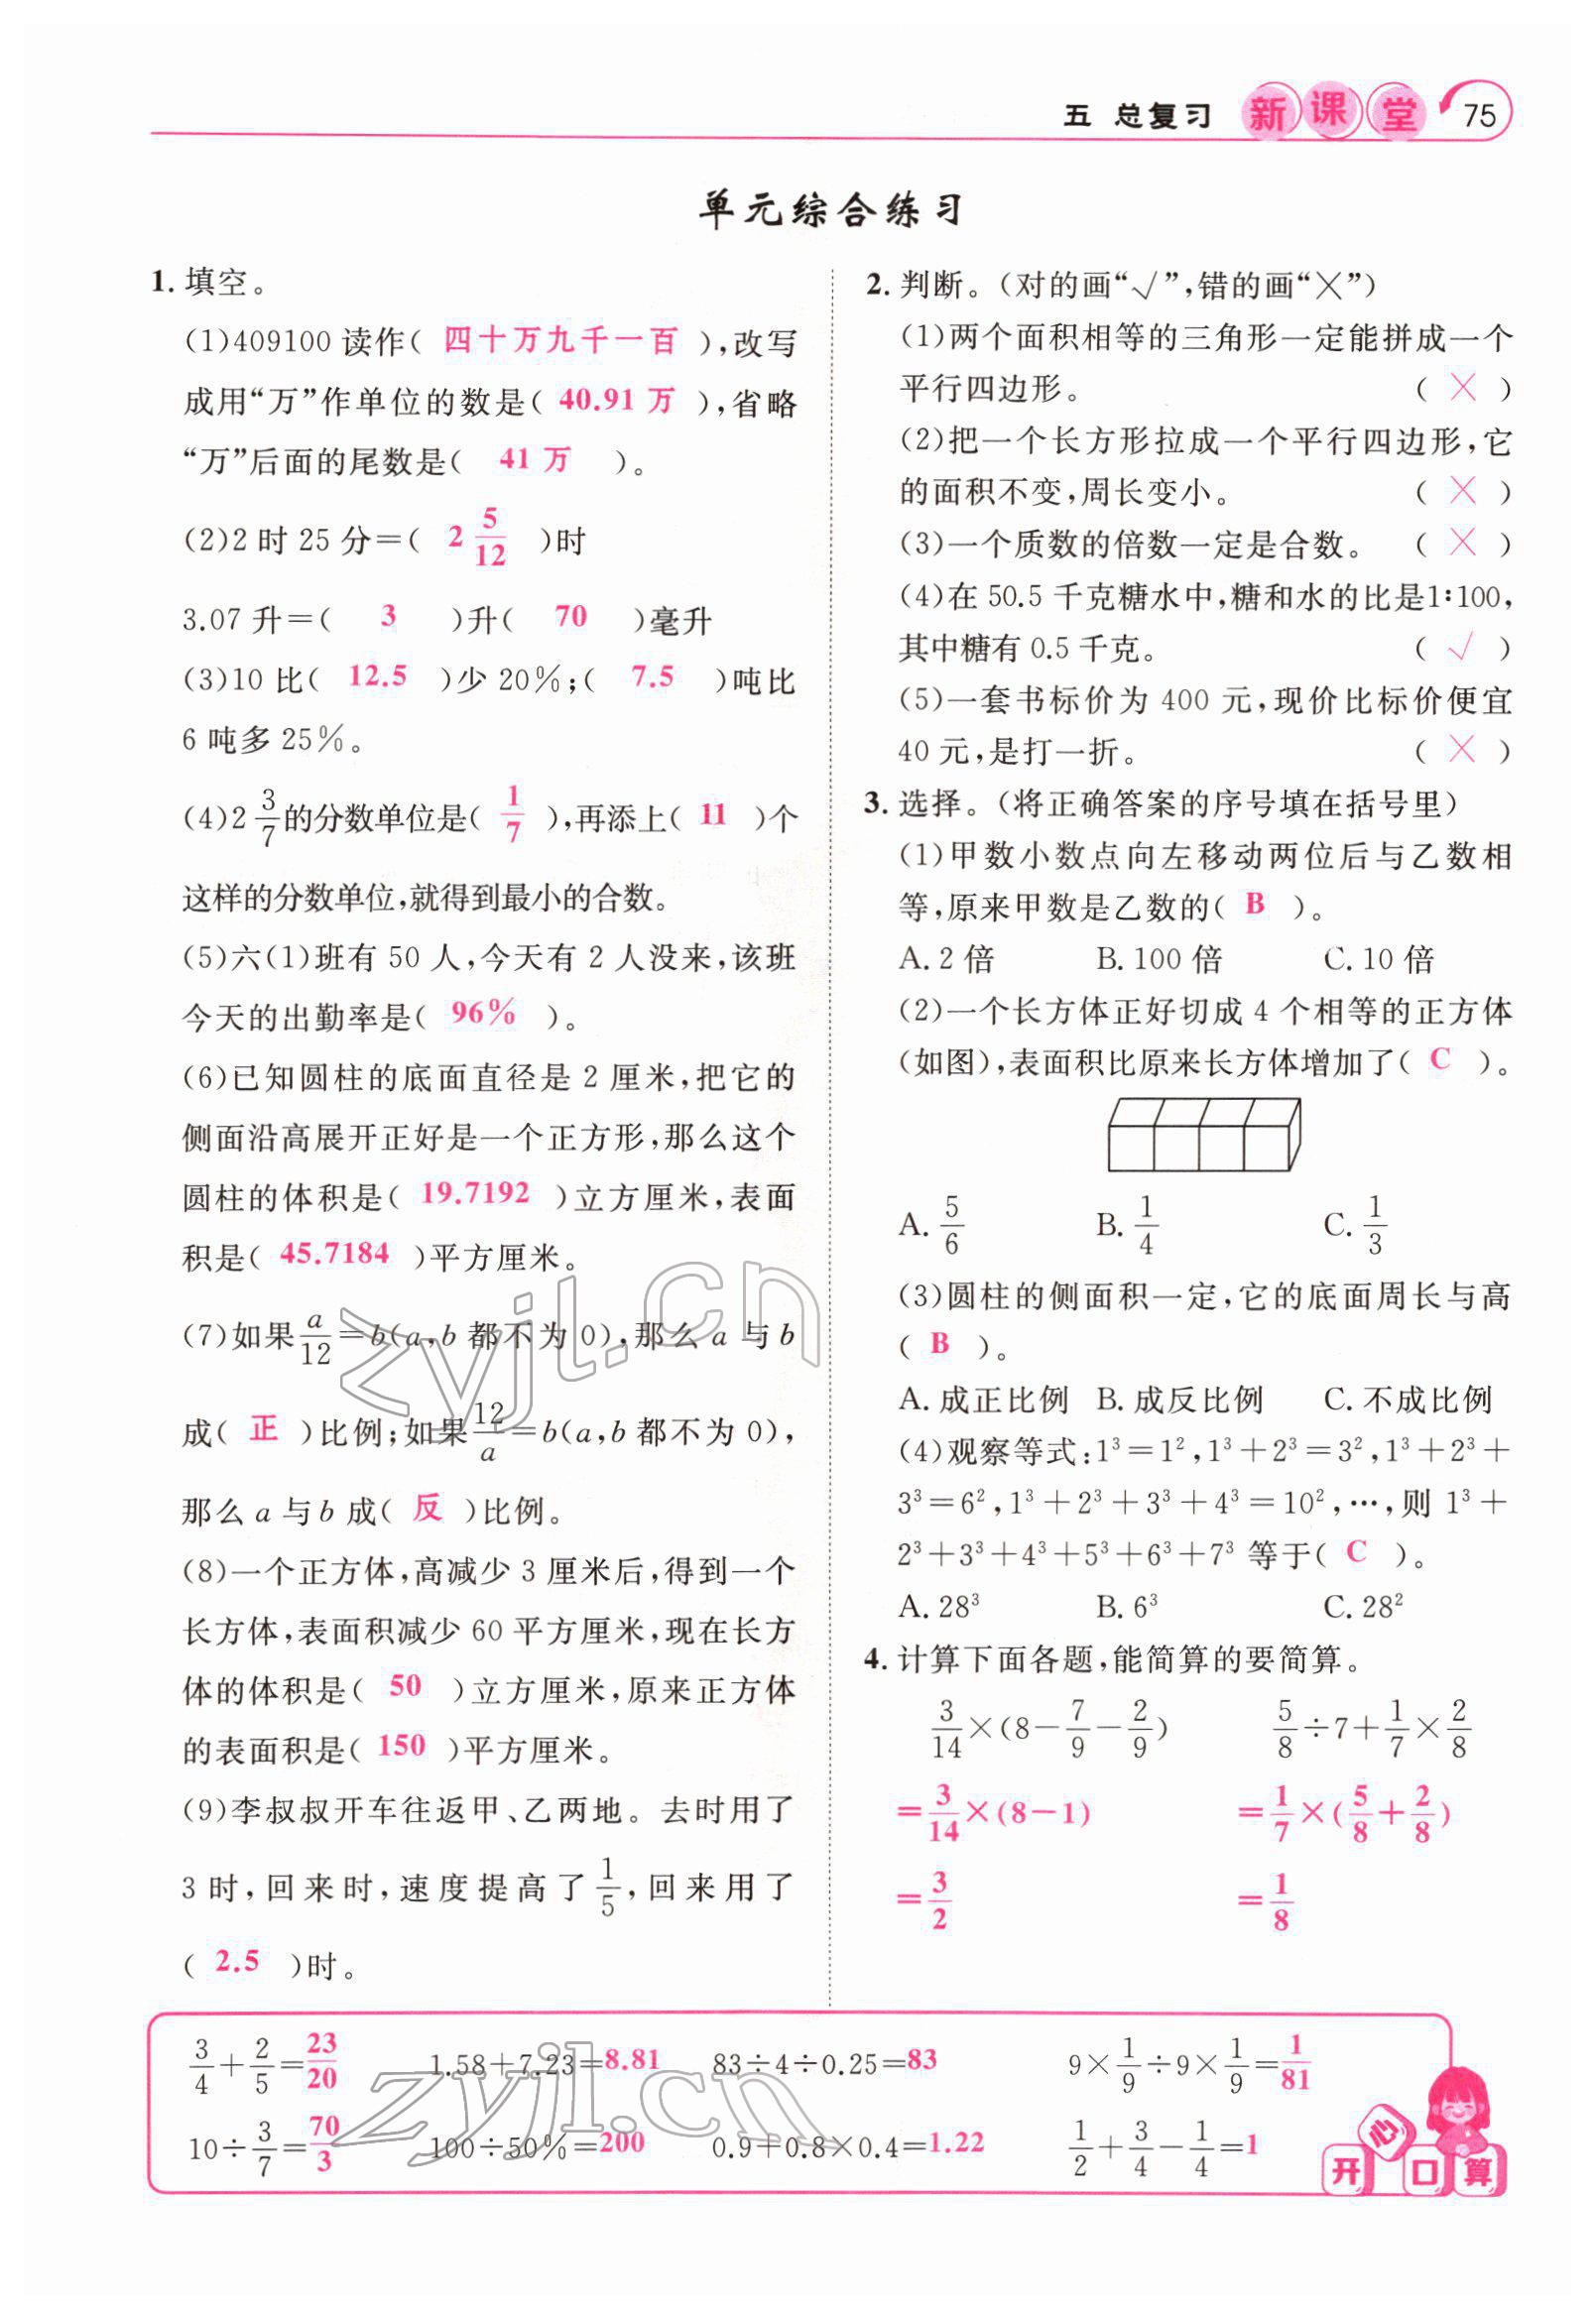 五 总复习 新课堂 75
单元综合练习
1. 填空。
(1)409100 读作( 四十万九千一百 ),改写
成用“万”作单位的数是( 40.91 万 ),省略
“万”后面的尾数是( 41 万 )。
(2)2 时 25 分=( 2 5/12 )时
3.07 升=( 3 )升( 70 )毫升
(3)10 比( 12.5 )少 20%;( 7.5 )吨比
6 吨多 25%。
(4)2 3/7 的分数单位是( 1/7 ),再添上( 11 )个
这样的分数单位,就得到最小的合数。
(5)六(1)班有 50 人,今天有 2 人没来,该班
今天的出勤率是( 96% )。
(6)已知圆柱的底面直径是 2 厘米,把它的
侧面沿高展开正好是一个正方形,那么这个
圆柱的体积是( 19.7192 )立方厘米,表面
积是( 45.7184 )平方厘米。
(7)如果 a/12=b(a,b 都不为 0),那么 a 与 b
成( 正 )比例;如果 12/a=b(a,b 都不为 0),
那么 a 与 b 成( 反 )比例。
(8)一个正方体,高减少 3 厘米后,得到一个
长方体,表面积减少 60 平方厘米,现在长方
体的体积是( 50 )立方厘米,原来正方体
的表面积是( 150 )平方厘米。
(9)李叔叔开车往返甲、乙两地。去时用了
3 时,回来时,速度提高了 1/5,回来用了
( 2.5 )时。
2. 判断。(对的画“√”,错的画“×”)
(1)两个面积相等的三角形一定能拼成一个
平行四边形。 ( × )
(2)把一个长方形拉成一个平行四边形,它
的面积不变,周长变小。 ( × )
(3)一个质数的倍数一定是合数。 ( × )
(4)在 50.5 千克糖水中,糖和水的比是1∶100,
其中糖有 0.5 千克。 ( √ )
(5)一套书标价为 400 元,现价比标价便宜
40 元,是打一折。 ( × )
3. 选择。(将正确答案的序号填在括号里)
(1)甲数小数点向左移动两位后与乙数相
等,原来甲数是乙数的( B )。
A. 2 倍 B. 100 倍 C. 10 倍
(2)一个长方体正好切成 4 个相等的正方体
(如图),表面积比原来长方体增加了( C )。
A. 5/6 B. 1/4 C. 1/3
(3)圆柱的侧面积一定,它的底面周长与高
( B )。
A. 成正比例 B. 成反比例 C. 不成比例
(4)观察等式:1³=1²,1³+2³=3²,1³+2³+
3³=6²,1³+2³+3³+4³=10²,…,则 1³+
2³+3³+4³+5³+6³+7³ 等于( C )。
A. 28³ B. 6³ C. 28²
4. 计算下面各题,能简算的要简算。
3/14×(8-7/9-2/9) 5/8÷7+1/7×2/8
=3/14×(8-1) =1/7×(5/8+2/8)
=3/2 =1/8
3/4+2/5=23/20 1.58+7.23=8.81 83÷4÷0.25=83 9×1/9÷9×1/9=1/81
10÷3/7=70/3 100÷50%=200 0.9+0.8×0.4=1.22 1/2+3/4-1/4=1
开心口算
zyjl.cn
zyjl.cn